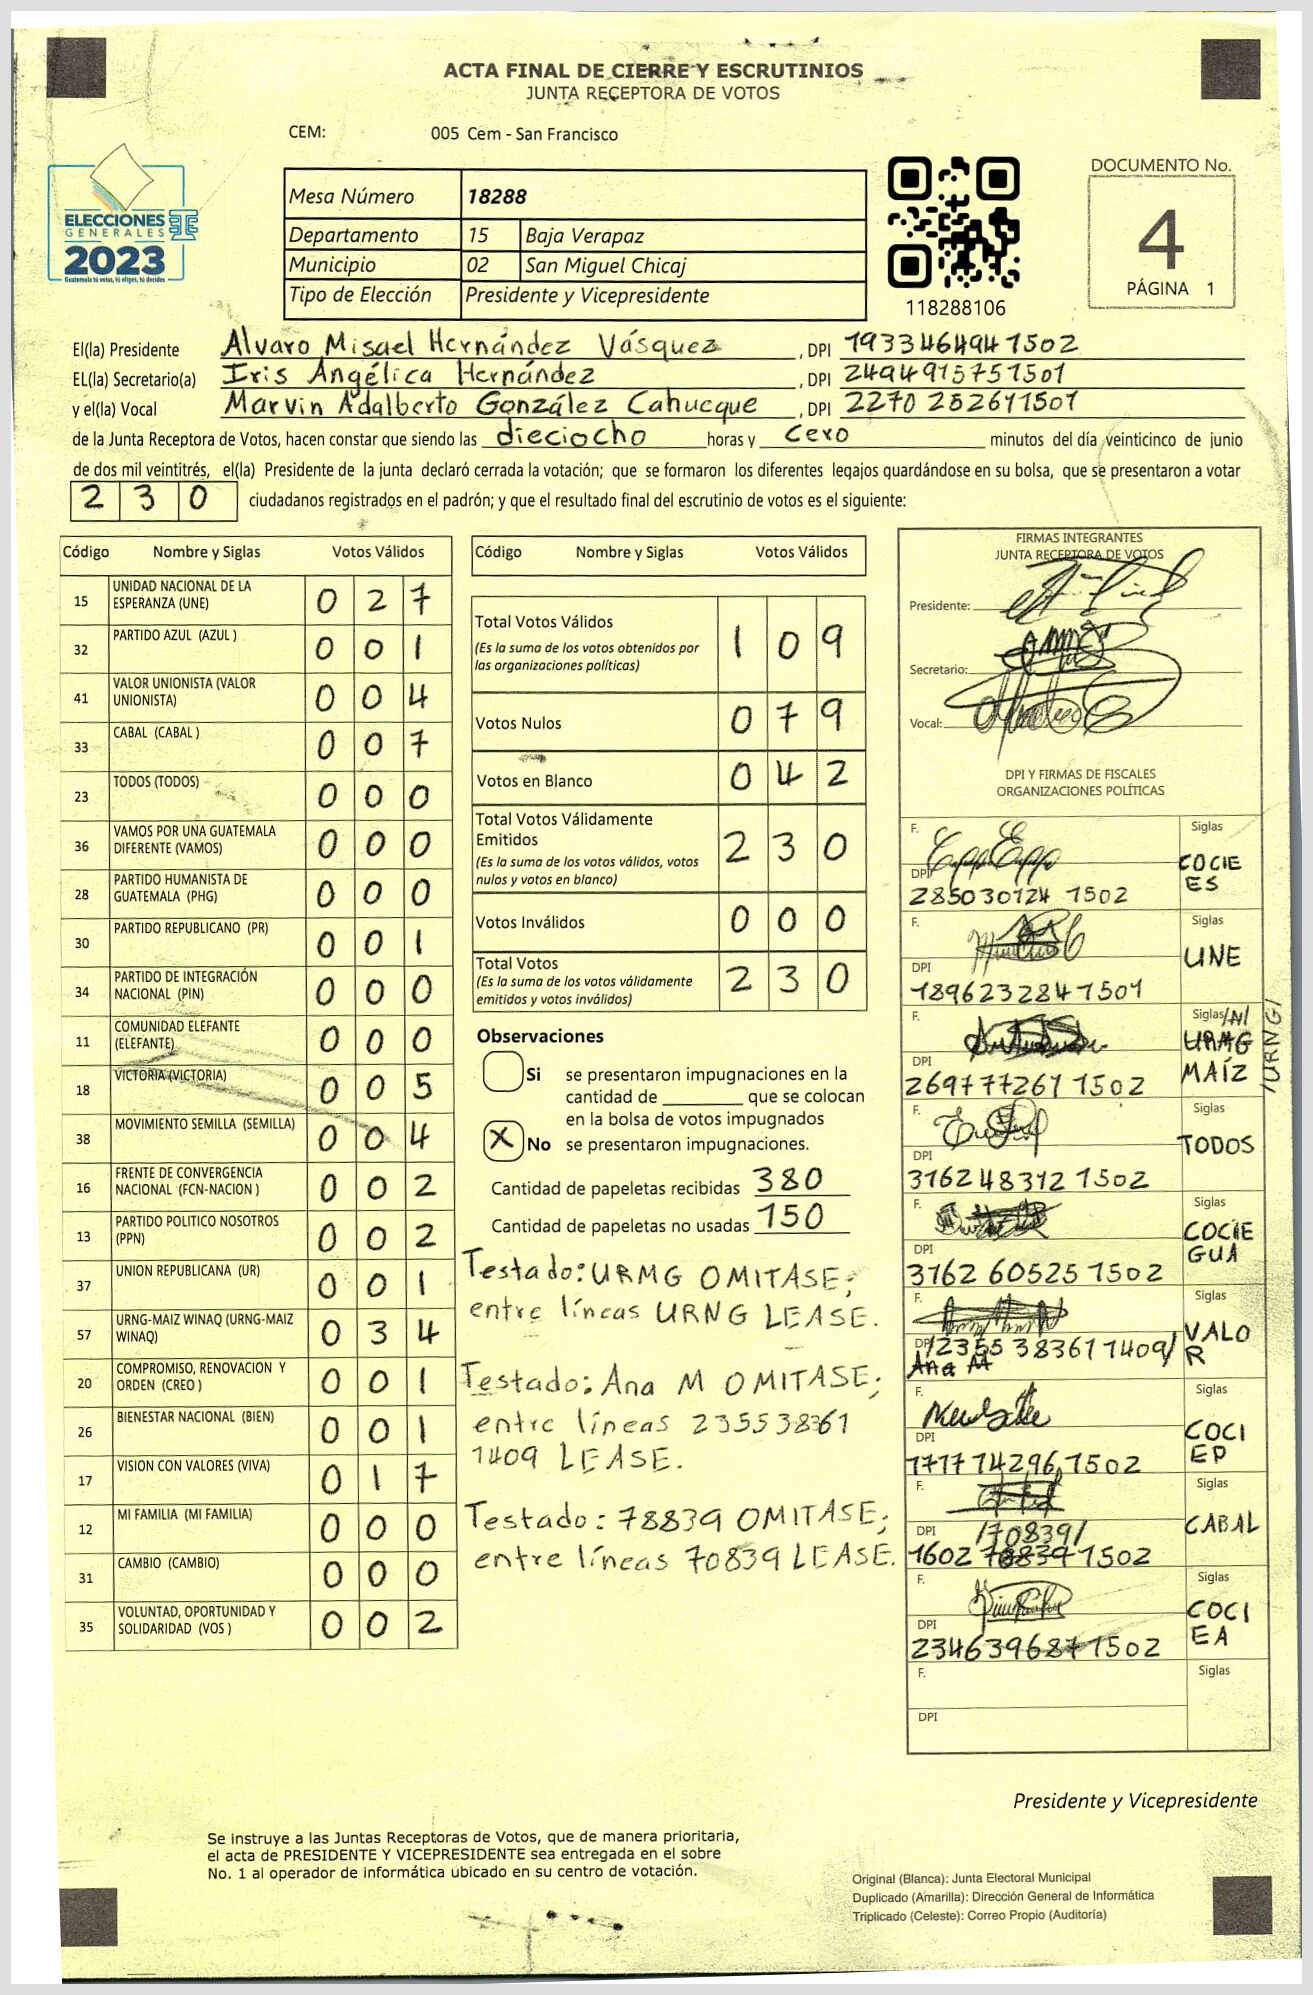 ACTA FINAL DE CIERRE Y ESCRUTINIOS
JUNTA RECEPTORA DE VOTOS
CEM: 005 Cem - San Francisco
ELECCIONES
GENERALES
2023
Guatemala tú votas, tú eliges, tú decides
Mesa Número 18288
Departamento 15 Baja Verapaz
Municipio 02 San Miguel Chicaj
Tipo de Elección Presidente y Vicepresidente
118288106
DOCUMENTO No.
4
PÁGINA 1
El(la) Presidente Alvaro Misael Hernández Vásquez, DPI 1933464941502
EL(la) Secretario(a) Iris Angélica Hernández, DPI 2494915751501
y el(la) Vocal Marvin Adalberto González Cahuecque, DPI 2270 252611501
de la Junta Receptora de Votos, hacen constar que siendo las dieciocho horas y cero minutos del día veinticinco de junio
de dos mil veintitrés, el(la) Presidente de la junta declaró cerrada la votación; que se formaron los diferentes legajos guardándose en su bolsa, que se presentaron a votar
2 3 0 ciudadanos registrados en el padrón; y que el resultado final del escrutinio de votos es el siguiente:
Código Nombre y Siglas Votos Válidos
15 UNIDAD NACIONAL DE LA ESPERANZA (UNE) 0 2 7
32 PARTIDO AZUL (AZUL ) 0 0 1
41 VALOR UNIONISTA (VALOR UNIONISTA) 0 0 4
33 CABAL (CABAL ) 0 0 7
23 TODOS (TODOS) 0 0 0
36 VAMOS POR UNA GUATEMALA DIFERENTE (VAMOS) 0 0 0
28 PARTIDO HUMANISTA DE GUATEMALA (PHG) 0 0 0
30 PARTIDO REPUBLICANO (PR) 0 0 1
34 PARTIDO DE INTEGRACIÓN NACIONAL (PIN) 0 0 0
11 COMUNIDAD ELEFANTE (ELEFANTE) 0 0 0
18 VICTORIA (VICTORIA) 0 0 5
38 MOVIMIENTO SEMILLA (SEMILLA) 0 0 4
16 FRENTE DE CONVERGENCIA NACIONAL (FCN-NACION ) 0 0 2
13 PARTIDO POLITICO NOSOTROS (PPN) 0 0 2
37 UNION REPUBLICANA (UR) 0 0 1
57 URNG-MAIZ WINAQ (URNG-MAIZ WINAQ) 0 3 4
20 COMPROMISO, RENOVACION Y ORDEN (CREO ) 0 0 1
26 BIENESTAR NACIONAL (BIEN) 0 0 1
17 VISION CON VALORES (VIVA) 0 1 7
12 MI FAMILIA (MI FAMILIA) 0 0 0
31 CAMBIO (CAMBIO) 0 0 0
35 VOLUNTAD, OPORTUNIDAD Y SOLIDARIDAD (VOS ) 0 0 2
Código Nombre y Siglas Votos Válidos
Total Votos Válidos 1 0 9
(Es la suma de los votos obtenidos por
las organizaciones políticas)
Votos Nulos 0 7 9
Votos en Blanco 0 4 2
Total Votos Válidamente
Emitidos 2 3 0
(Es la suma de los votos válidos, votos
nulos y votos en blanco)
Votos Inválidos 0 0 0
Total Votos 2 3 0
(Es la suma de los votos válidamente
emitidos y votos inválidos)
Observaciones
Si se presentaron impugnaciones en la
cantidad de ________ que se colocan
en la bolsa de votos impugnados
X No se presentaron impugnaciones.
Cantidad de papeletas recibidas 380
Cantidad de papeletas no usadas 150
Testado: URMG OMITASE;
entre líneas URNG LEASE.
Testado: Ana M OMITASE;
entre líneas 235538361
1409 LEASE.
Testado: 78839 OMITASE;
entre líneas 70839 LEASE.
FIRMAS INTEGRANTES
JUNTA RECEPTORA DE VOTOS
Presidente:
Secretario:
Vocal:
DPI Y FIRMAS DE FISCALES
ORGANIZACIONES POLÍTICAS
F. Siglas
DPI COCIE
285030124 1502 ES
F. Siglas
DPI UNE
1896232841501
F. Siglas /N/
URMG /URNG/
DPI MAÍZ
269777261 1502
F. Siglas
DPI TODOS
3162483121502
F. Siglas
DPI COCIE
GUA
3162 605251502
F. Siglas
DPI /2355 383611409/ VALO
Ana M R
F. Siglas
DPI COCI
1717742961502 EP
F. Siglas
DPI /70839/ CABAL
1602 78839 1502
F. Siglas
DPI COCI
2346396871502 EA
F. Siglas
DPI
Presidente y Vicepresidente
Se instruye a las Juntas Receptoras de Votos, que de manera prioritaria,
el acta de PRESIDENTE Y VICEPRESIDENTE sea entregada en el sobre
No. 1 al operador de informática ubicado en su centro de votación.
Original (Blanca): Junta Electoral Municipal
Duplicado (Amarilla): Dirección General de Informática
Triplicado (Celeste): Correo Propio (Auditoría)